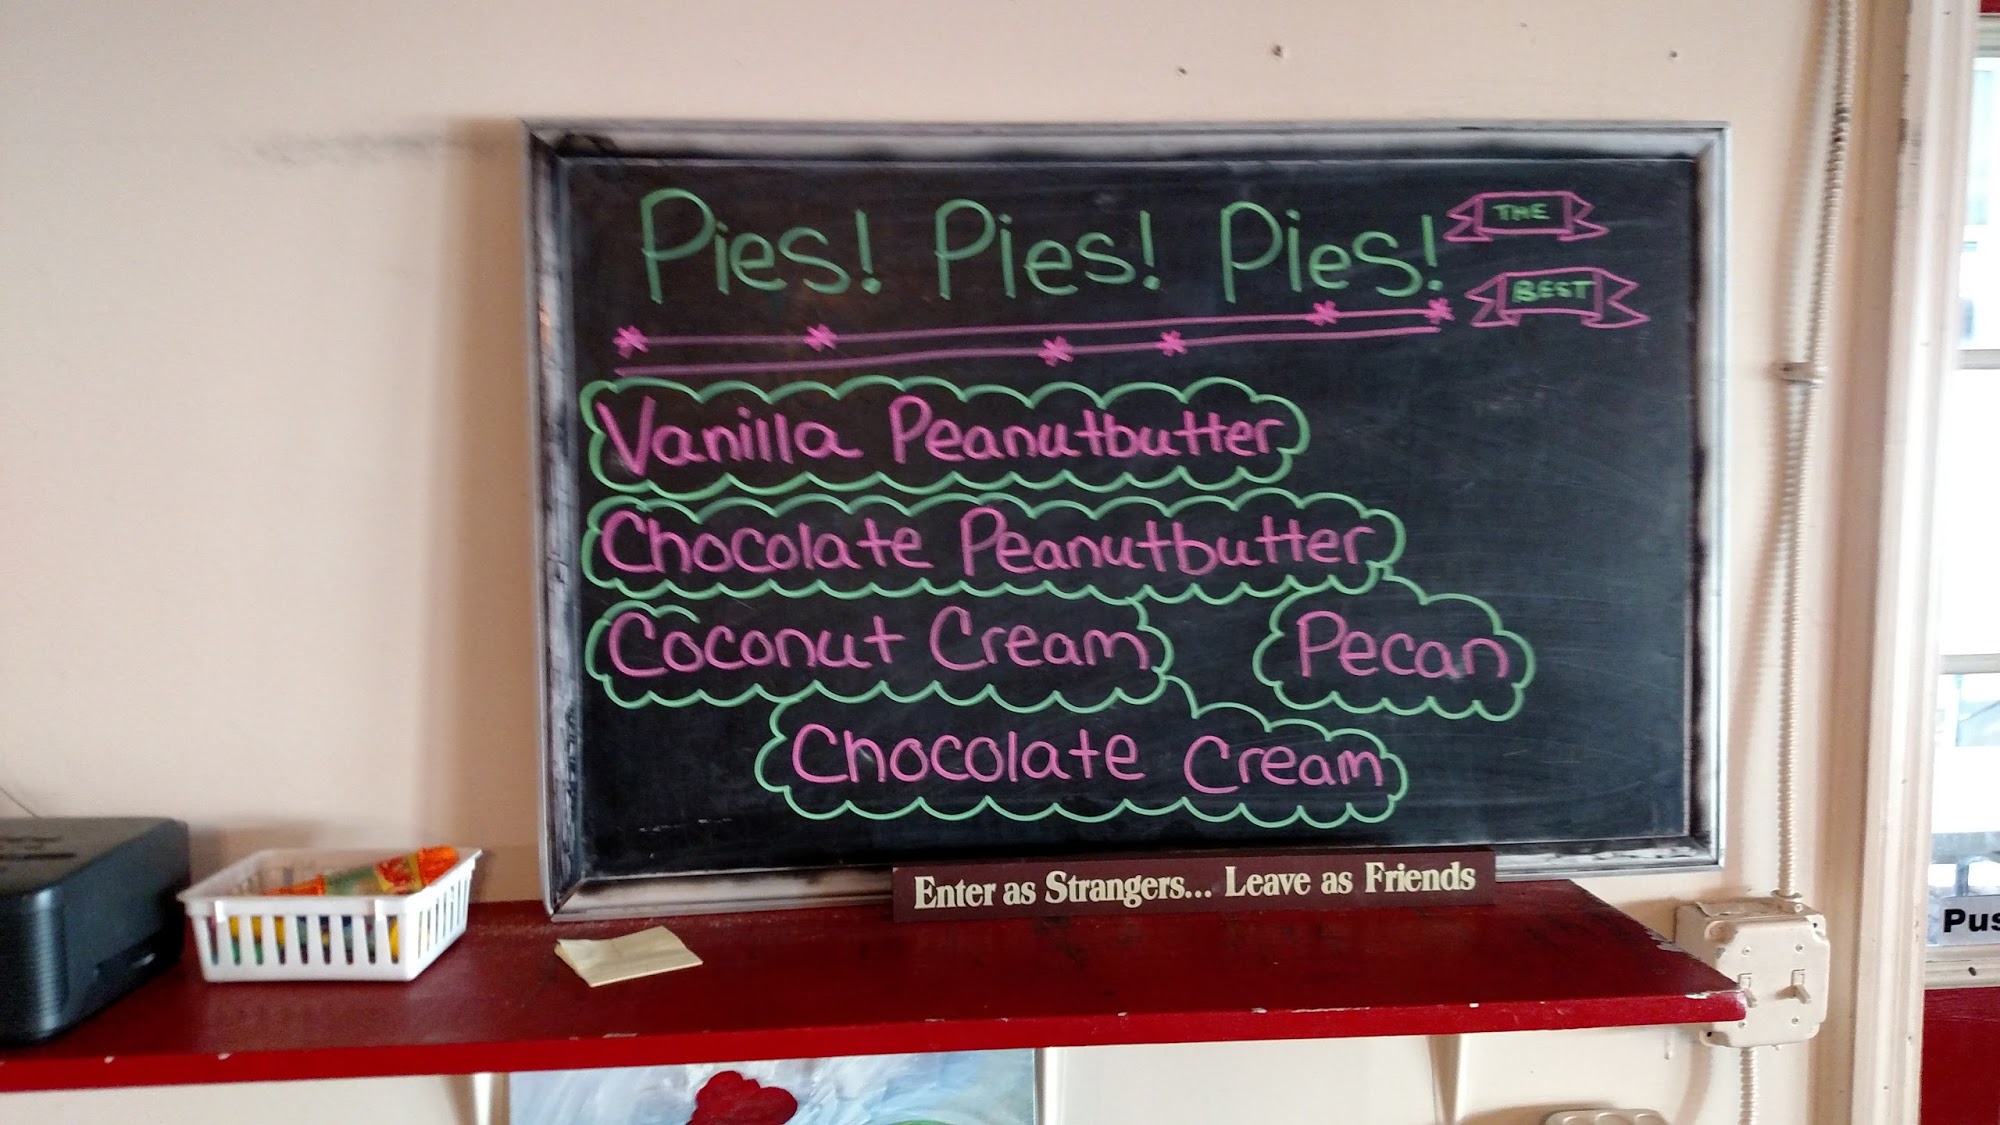 Pies! Pies! Pies!
THE
BEST
Vanilla Peanutbutter
Chocolate Peanutbutter
Coconut Cream
Pecan
Chocolate Cream
Enter as Strangers... Leave as Friends
Pus